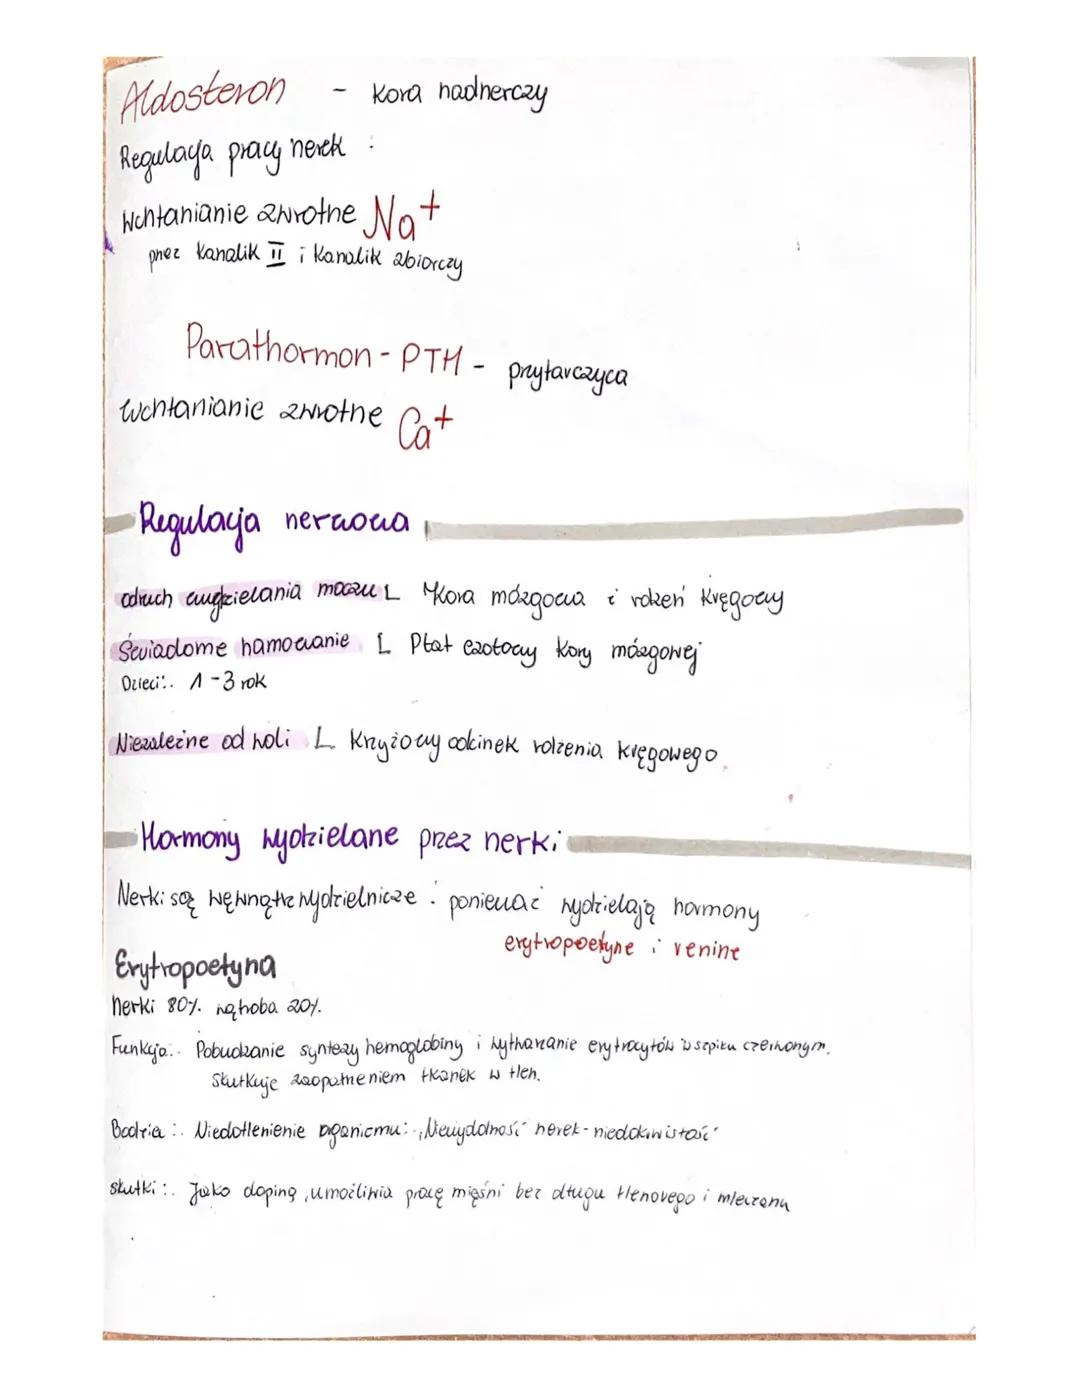 Aldosteron - Kora nadnerczy
Regulacja pracy nerek :
Wchłanianie zwrotne Na+
przez kanalik II i kanalik zbiorczy
Parathormon - PTH - przytarczyca
Wchłanianie zwrotne Ca+
Regulacja nerwowa
odruch wydzielania moczu L Kora mózgowa i rdzeń kręgowy
Świadome hamowanie L Płat czołowy kory mózgowej
Dzieci:. 1-3 rok
Niezależne od woli L Krzyżowy odcinek rdzenia kręgowego
Hormony wydzielane przez nerki
Nerki są wewnątrz wydzielnicze : ponieważ wydzielają hormony
erytropoetynę i reninę
Erytropoetyna
nerki 80% wątroba 20%.
Funkcja:. Pobudzanie syntezy hemoglobiny i wytwarzanie erytrocytów w szpiku czerwonym.
Skutkuje zaopatrzeniem tkanek w tlen.
Bodźce :. Niedotlenienie organizmu:, Niewydolność nerek - niedokrwistość
Skutki :. Jako doping, umożliwia pracę mięśni bez długu tlenowego i mleczanu